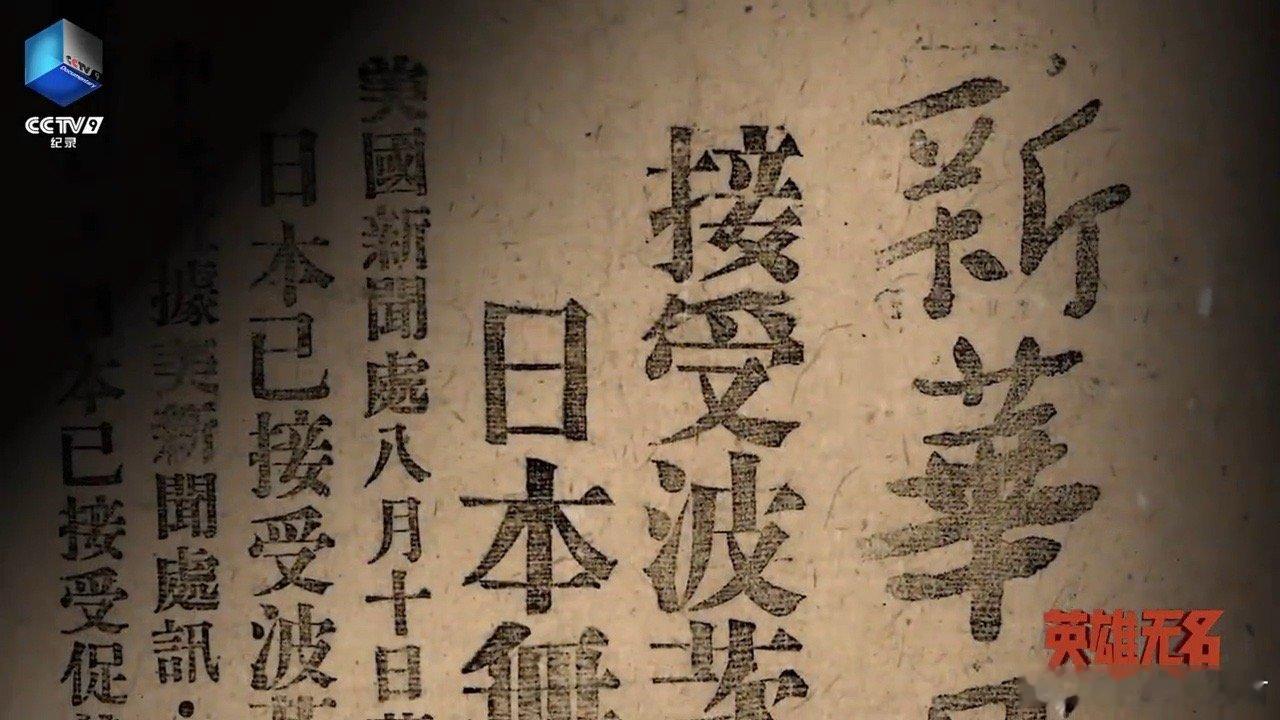 CCTV 9
Documentary
CCTV9
纪录
新華
接受波茨
日本無
美國新聞處八月十日
日本已接受波
據美新聞處訊·
本已接受促
英雄无名